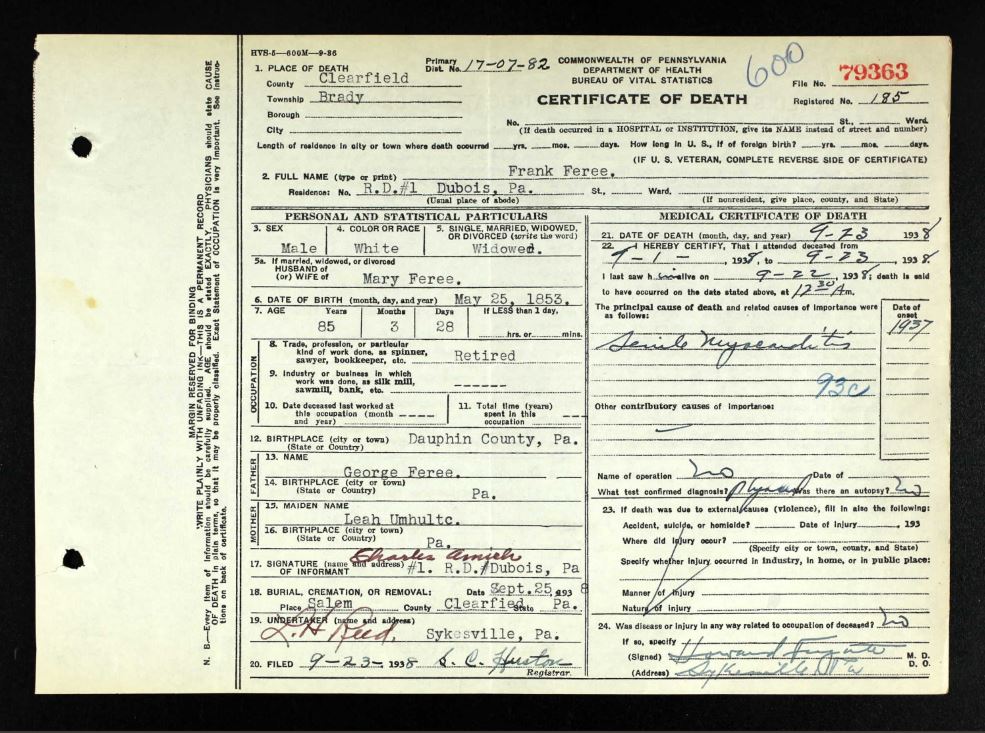 HVS-5—600M—9-36
Primary Dist. No. 17-07-82
COMMONWEALTH OF PENNSYLVANIA
DEPARTMENT OF HEALTH
BUREAU OF VITAL STATISTICS
600
File No. 79363
CERTIFICATE OF DEATH
Registered No. 185
1. PLACE OF DEATH
County Clearfield
Township Brady
Borough
City
No. St., Ward.
(If death occurred in a HOSPITAL or INSTITUTION, give its NAME instead of street and number)
Length of residence in city or town where death occurred yrs. mos. days. How long in U. S., if of foreign birth? yrs. mos. days.
(IF U. S. VETERAN, COMPLETE REVERSE SIDE OF CERTIFICATE)
2. FULL NAME (type or print) Frank Feree.
Residence: No. R.D.#1 Dubois, Pa. St., Ward,
(Usual place of abode) (If nonresident, give place, county, and State)
PERSONAL AND STATISTICAL PARTICULARS
3. SEX
Male
4. COLOR OR RACE
White
5. SINGLE, MARRIED, WIDOWED, OR DIVORCED (write the word)
Widowed.
5a. If married, widowed, or divorced
HUSBAND of
(or) WIFE of Mary Feree.
6. DATE OF BIRTH (month, day, and year) May 25, 1853.
7. AGE Years Months Days If LESS than 1 day,
85 3 28 hrs. or mins.
OCCUPATION
8. Trade, profession, or particular
kind of work done, as spinner,
sawyer, bookkeeper, etc. Retired
9. Industry or business in which
work was done, as silk mill,
sawmill, bank, etc. ------
10. Date deceased last worked at
this occupation (month
and year) ----
11. Total time (years)
spent in this
occupation ---
12. BIRTHPLACE (city or town) Dauphin County, Pa.
(State or Country)
FATHER
13. NAME
George Feree.
14. BIRTHPLACE (city or town)
(State or Country) Pa.
MOTHER
15. MAIDEN NAME
Leah Umhultc.
16. BIRTHPLACE (city or town)
(State or Country) Pa.
Charles
17. SIGNATURE (name and address) #1. R.D.#Dubois, Pa
OF INFORMANT
18. BURIAL, CREMATION, OR REMOVAL: Date Sept.25, 1938
Place Salem County Clearfied State Pa.
19. UNDERTAKER (name and address)
L.H. Reed, Sykesville, Pa.
20. FILED 9-23-1938 S. C. Huston
Registrar.
MEDICAL CERTIFICATE OF DEATH
21. DATE OF DEATH (month, day, and year) 9-23 1938
22. I HEREBY CERTIFY, That I attended deceased from
9-1-, 1938, to 9-23, 1938.
I last saw him alive on 9-22, 1938; death is said
to have occurred on the date stated above, at 12 30 A m.
The principal cause of death and related causes of importance were
as follows:
Date of
onset
1937
Senile Myocarditis
93c
Other contributory causes of importance:
Name of operation No Date of
What test confirmed diagnosis? Was there an autopsy? No
23. If death was due to external causes (violence), fill in also the following:
Accident, suicide, or homicide? Date of injury , 193
Where did injury occur?
(Specify city or town, county, and State)
Specify whether injury occurred in industry, in home, or in public place:
Manner of injury
Nature of injury
24. Was disease or injury in any way related to occupation of deceased? No
If so, specify
(Signed) Howard M. D.
D. O.
(Address) Sykesville Pa
MARGIN RESERVED FOR BINDING
WRITE PLAINLY WITH UNFADING INK—THIS IS A PERMANENT RECORD
N. B.—Every item of information should be carefully supplied. AGE should be stated EXACTLY. PHYSICIANS should state CAUSE
OF DEATH in plain terms, so that it may be properly classified. Exact Statement of OCCUPATION is very important. See instruc-
tions on back of certificate.